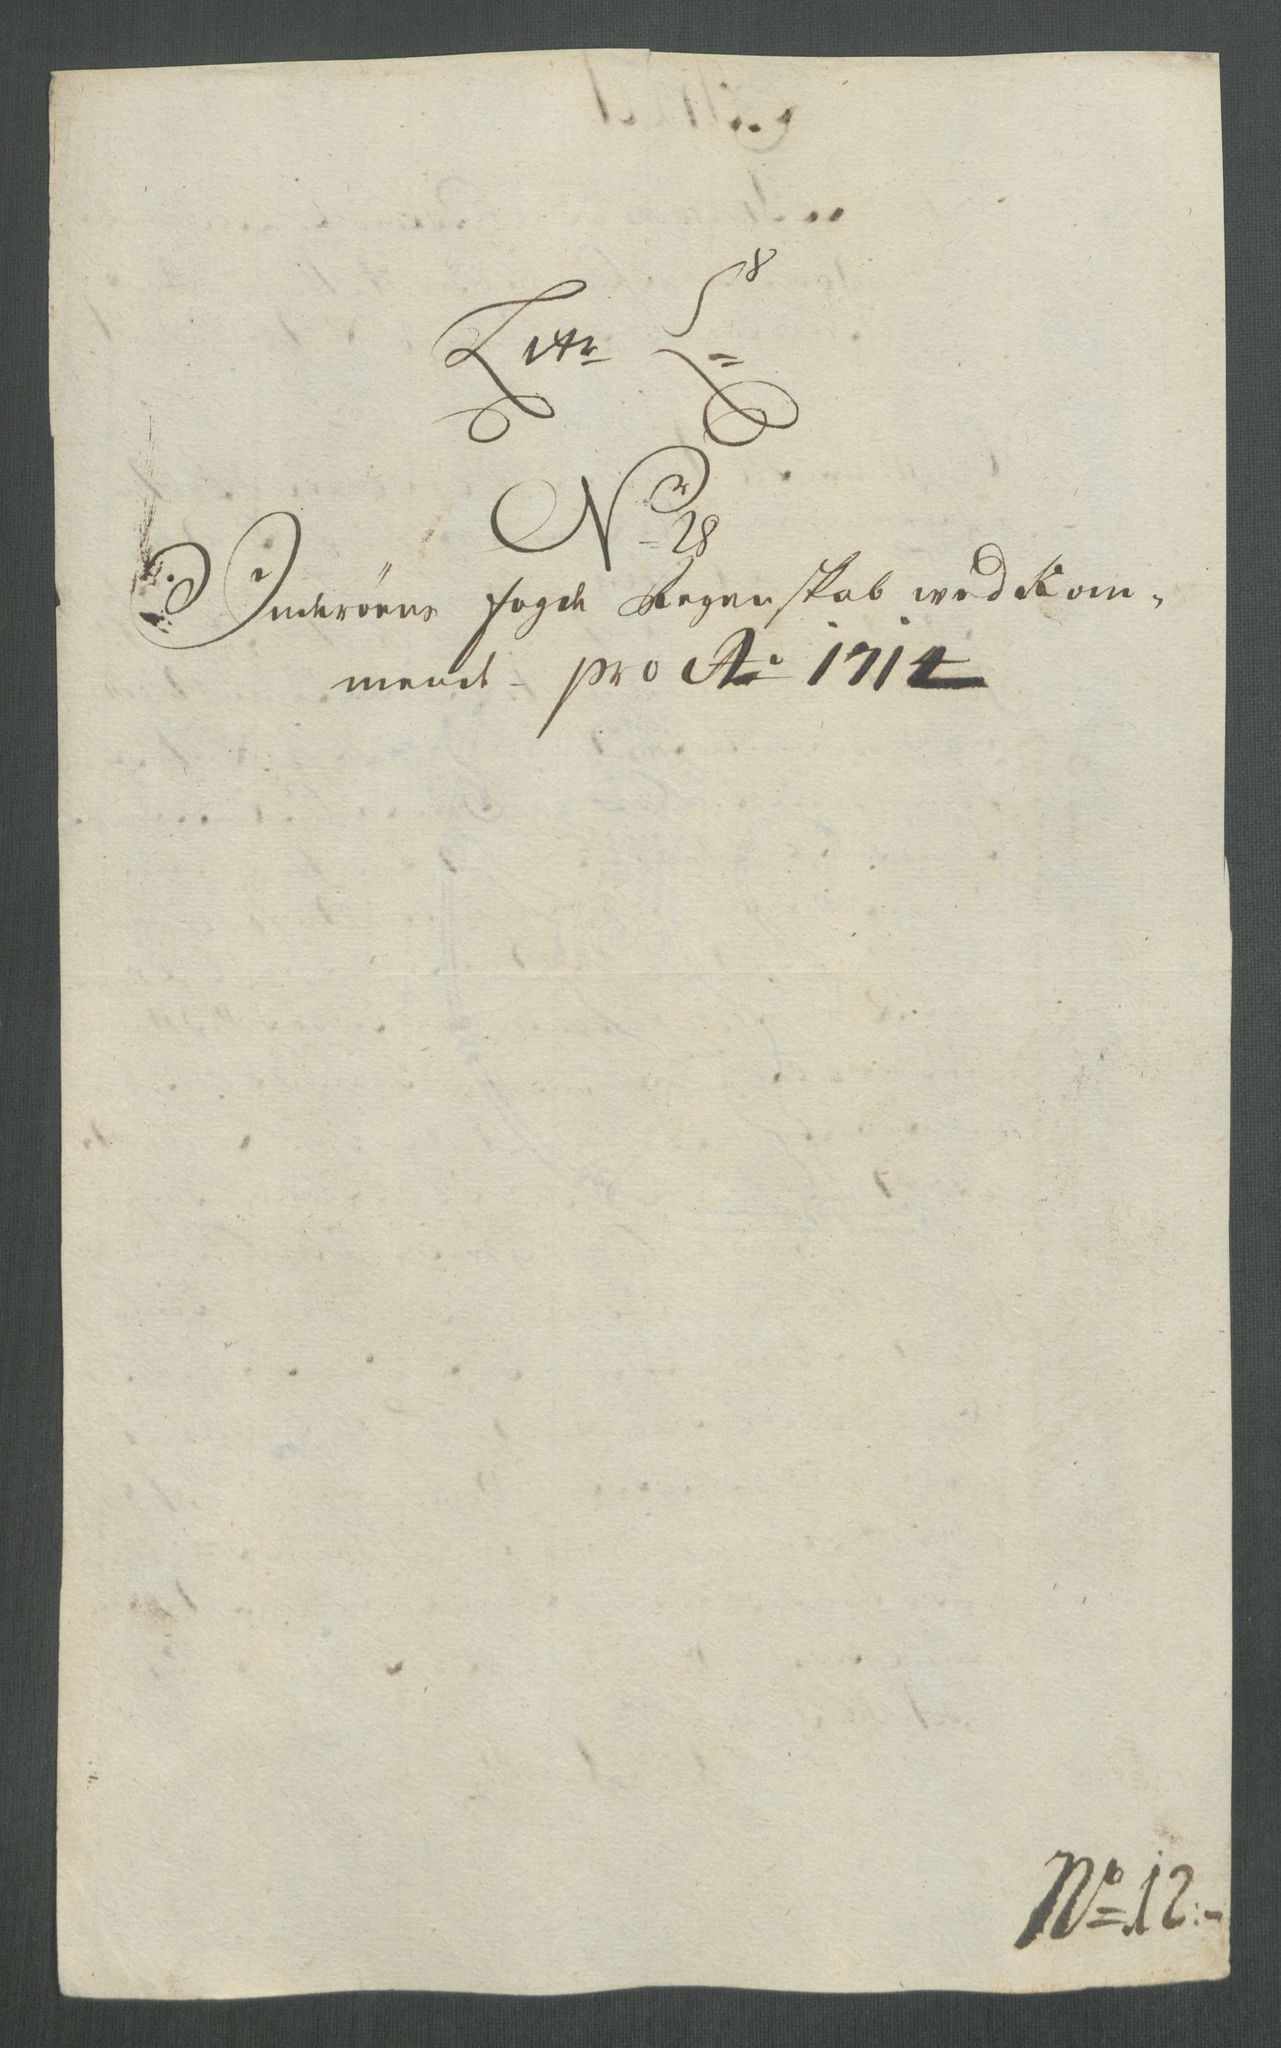 Litr L
8
Nr 28
Inderöens Fogde Regenskab wedkom=
mende - pro Ao 1714
No 12:-